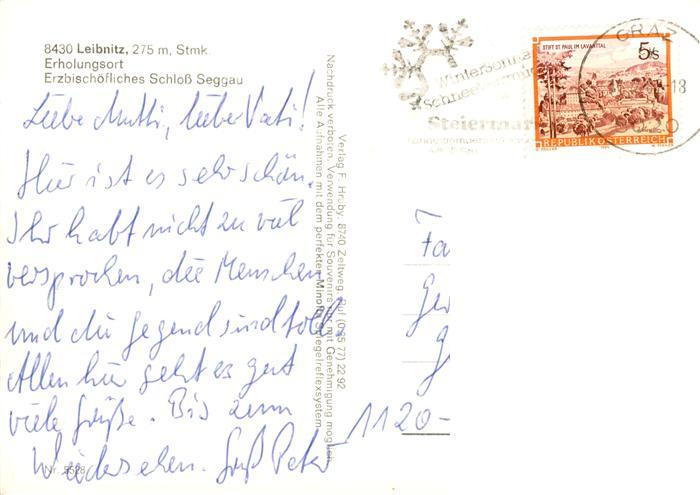 8430 Leibnitz, 275 m, Stmk.
Erholungsort
Erzbischöfliches Schloß Seggau
Liebe Mutti, lieber Vati!
Hier ist es sehr schön.
Ihr habt nicht zu viel
versprochen, die Menschen
und die Gegend sind toll.
Allen hier geht es gut
viele Grüße. Bis zum
Wiedersehen. Gruß Peter
Nr. 5528
Verlag F. Hruby, 8740 Zeltweg, Ruf (0 35 77) 22 92
Nachdruck verboten, Verwendung für Souvenirs nur mit Genehmigung möglich
Alle Aufnahmen mit dem perfekten Minolta Spiegelreflexsystem
Steiermark
GRAZ
18
STIFT ST. PAUL IM LAVANTTAL
5 S
REPUBLIK ÖSTERREICH
Fa
Ger
G
1120-